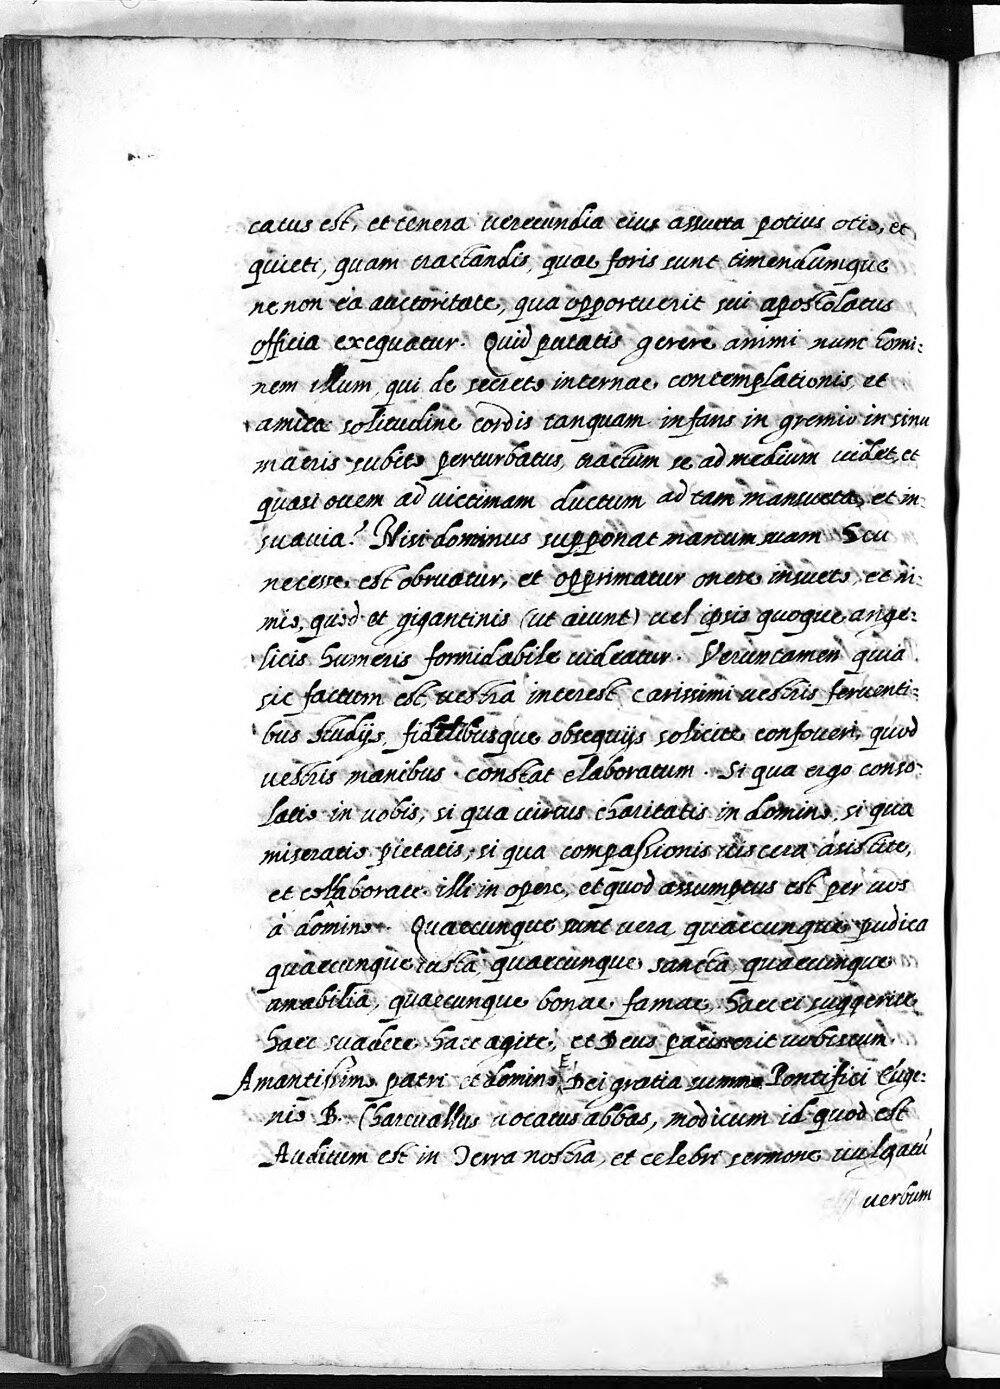 catus est, et tenera verecundia eius assueta potius otio, et
quieti, quam tractandis, quae foris sunt timendumque
ne non ea auctoritate, qua opportuerit sui apostolatus
officia exequatur. Quid putatis gerere animi nunc homi:
nem illum, qui de secreto internae contemplationis, et
amica solitudine cordis tanquam infans in gremio in sinu
matris subito perturbatus, tractum se ad medium videt, et
quasi ovem ad victimam ductum ad tam mansueta, et in:
suavia? Nisi dominus supponat manum suam heu
necesse est obruatur, et opprimatur onere insueto, et ni:
mio, quod et gigantinis (ut aiunt) vel ipsis quoque ange:
licis humeris formidabile videatur. Veruntamen quia
sic factum est, vestra interest carissimi vestris ferventi:
bus studijs, fidelibusque obsequijs solicite confoveri, quod
vestris manibus constat elaboratum. Si qua ergo conso:
latio in vobis, si qua virtus charitatis in domino, si qua
miseratio pietatis, si qua compassionis viscera asistite,
et collaborate illi in opere, et quod assumptus est per vos
à domino. Quaecunque sunt vera, quaecunque pudica
quaecunque iusta, quaecunque sancta, quaecunque
amabilia, quaecunque bonae famae, haec ei suggerite
haec suadete haec agite, et Deus pacis erit vobiscum.
Amantissimo patri et domino E. Dei gratia summo Pontifici Euge:
nio B. Charevallus vocatus abbas, modicum id quod est
Auditum est in Terra nostra, et celebri sermone vulgatũ
verbum